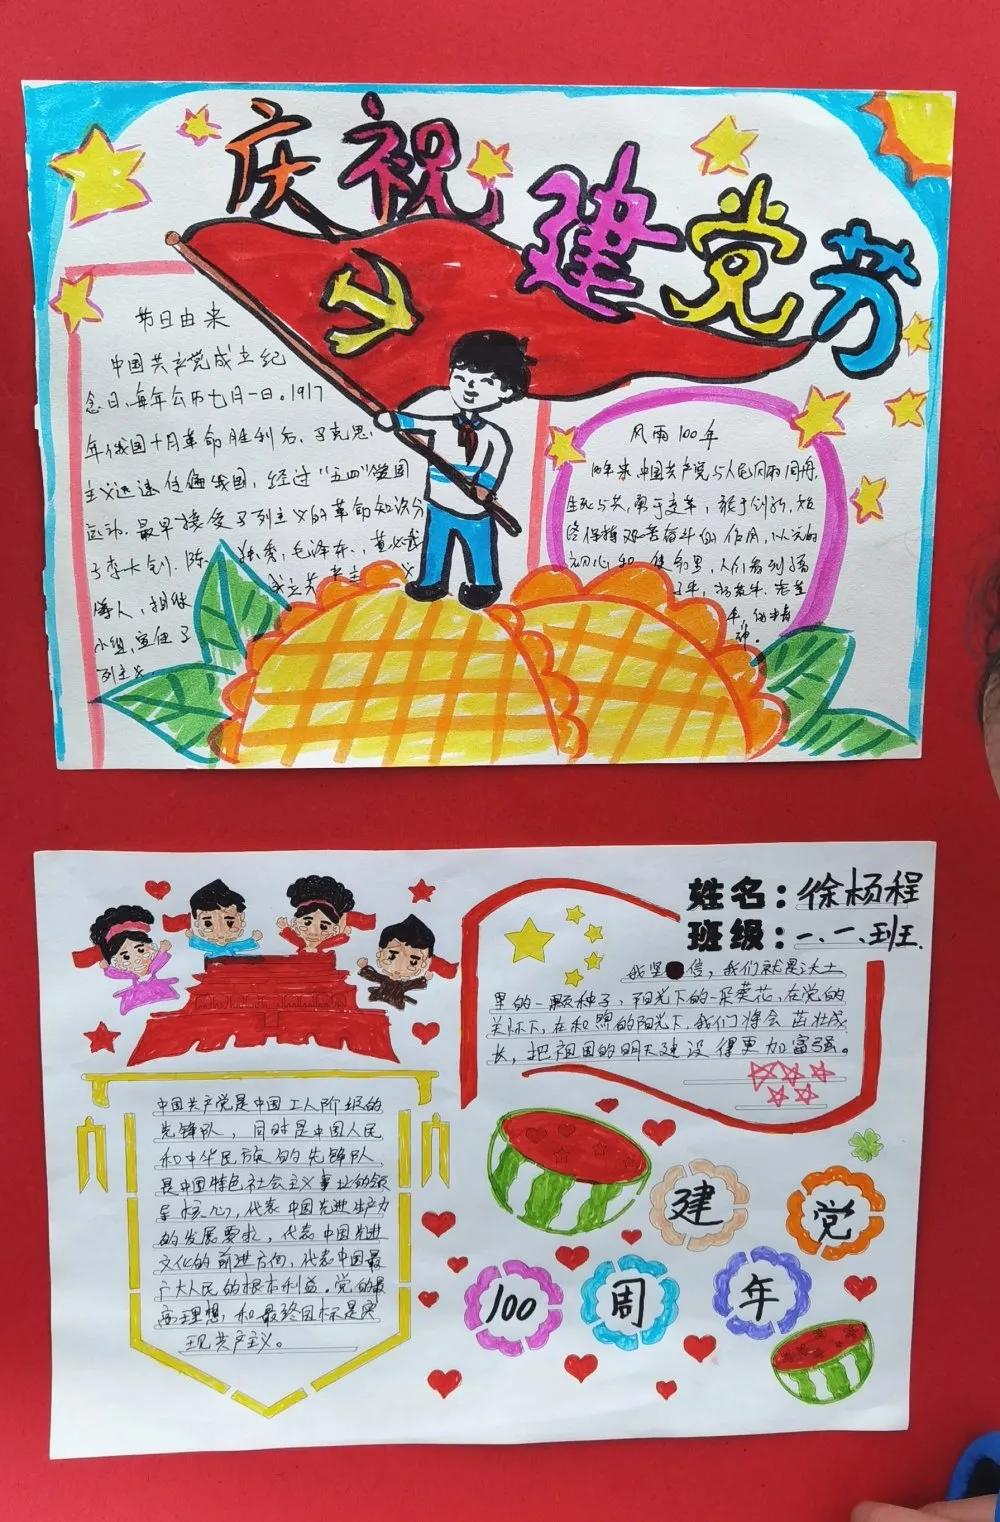 庆祝建党节
节日由来
中国共产党成立纪
念日、每年公历七月一日。1917
年俄国十月革命胜利后,
主义迅速传遍我国,经过"五四"爱国
运动.最早接受了列主义的革命知识分
子李大钊.陈独秀,毛泽东,董必武
等人,相继成立共产主义
小组,宣传了
列主义.
风雨100年
100年来中国共产党与人民风雨同舟,
生死与共,勇于变革,敢于创新,始
终保持艰苦奋斗的作用,从元的
初心和使命里,人们看到了孺
子牛,拓荒牛.老黄
牛,的精
神。
姓名:徐杨程
班级:一、一、班.
我坚信,我们就是沃土
里的一颗种子,阳光下的一朵葵花,在党的
关怀下,在和煦的阳光下,我们将会茁壮成
长,把祖国的明天建设得更加富强。
中国共产党是中国工人阶级的
先锋队,同时是中国人民
和中华民族的先锋队,
是中国特色社会主义事业的领
导核心,代表中国先进生产力
的发展要求,代表中国先进
文化的前进方向,代表中国最
广大人民的根本利益。党的最
高理想和最终目标是实
现共产主义。
建党
100周年